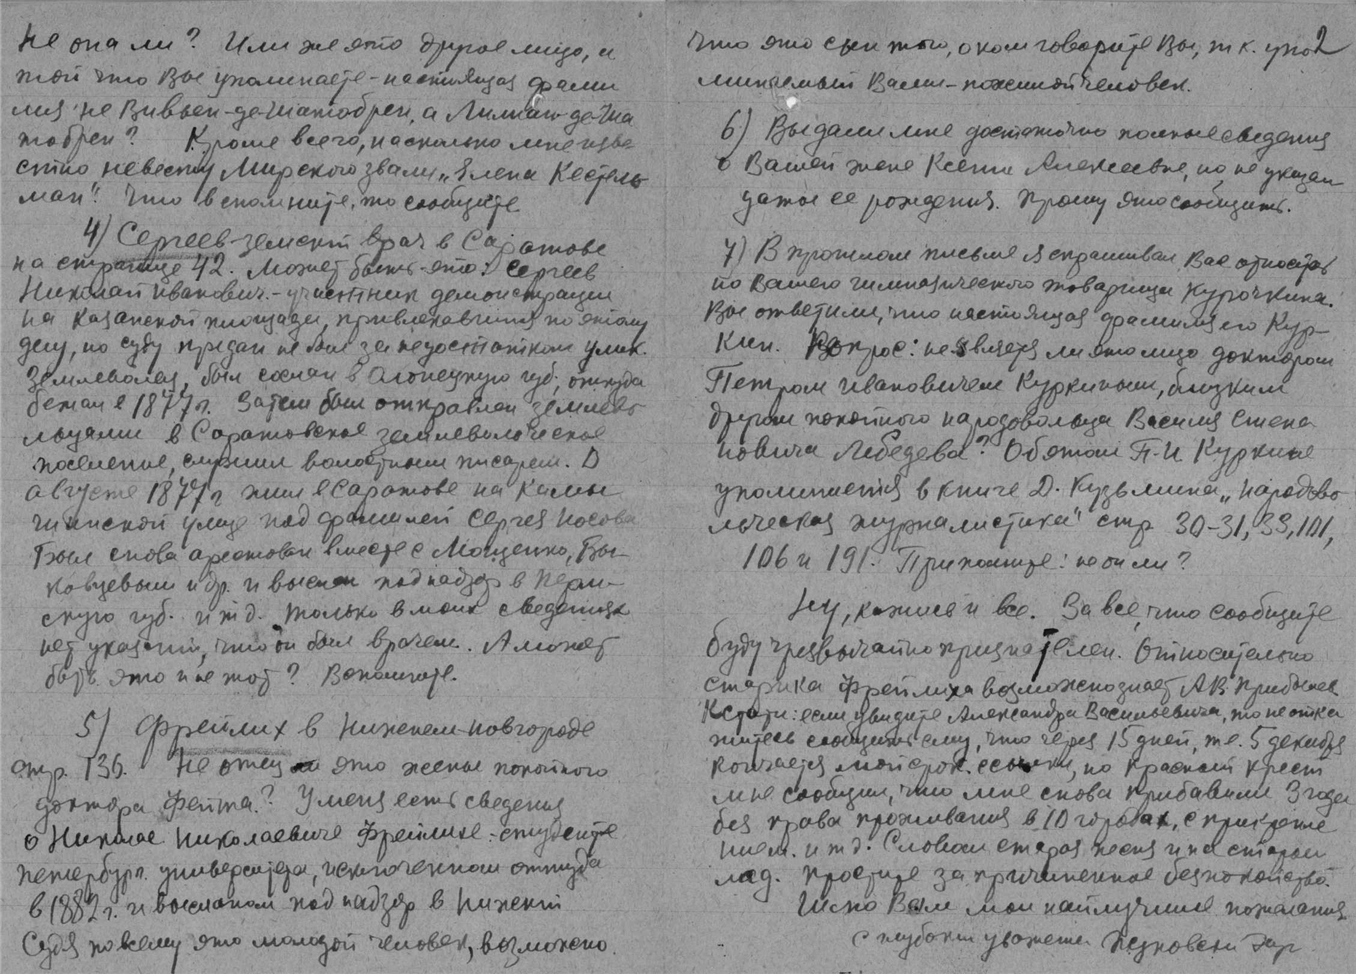 не она ли? Или же это другое лицо, и
той что Вы упоминаете - настоящая фами
лия не Вивьен-де-Шатобрен, а Лилиан-де-Ша
тобрен? Кроме всего, насколько мне изве
стно невесту Мирского звали „Елена Кестель
ман". Что вспомните, то сообщите
4) Сергеев - земский врач в Саратове
на странице 42. Может быть это: Сергеев
Николай Иванович - участник демонстрации
на Казанской площади, привлекавшийся по этому
делу, но суду предан не был за недостатком улик.
Землеволец, был сослан в Олонецкую губ., откуда
бежал в 1877 г. Затем был отправлен землево
льцами в Саратовское землевольческое
поселение, служил волостным писарем. В
августе 1877 г жил в Саратове на Камы
шинской улице под фамилией Сергея Носова
Был снова арестован вместе с Мощенко, Бы-
ковцевым и др. и выслан под надзор в Перм-
скую губ. и т д. Только в моих сведениях
нет указаний, что он был врачем. А может
быть это и не тот? Вспомните.
5) Фрейлих в Нижнем-Новгороде
стр. 136. Не отец ли это жены покойного
доктора Фейта? У меня есть сведения
о Николае Николаевиче Фрейлихе - студенте
петербург. университета, исключенном оттуда
в 1882 г. и высланом под надзор в Нижний
Судя по всему это молодой человек, возможно
что это сын того, о ком говорите Вы, т к. упо 2
минаемый Вами - пожилой человек.
6) Вы дали мне достаточно полные сведения
о Вашей жене Ксении Алексеевне, но не указали
даты ее рождения. Прошу это сообщить.
7) В прошлом письме я спрашивал Вас относитель
но Вашего гимназического товарища Курочкина.
Вы ответили, что настоящая фамилия его Кур-
кин. Вопрос: не является ли это лицо доктором
Петром Ивановичем Куркиным, близким
другом покойного народовольца Василия Степа
новича Лебедева? Об этом П. И Куркине
упоминается в книге Д. Кузьмина „Народово
льческая журналистика" стр 30-31, 39, 101,
106 и 191. Припомните: не он ли?
Ну, кажись и все. За все, что сообщите
буду чрезвычайно признателен. Относительно
старика Фрейлиха возможно знает А В. Прибылев
Кстати: если увидите Александра Васильевича, то не отка
житесь сообщить ему, что через 15 дней, т.е. 5 декабря
кончается мой срок ссылки, но Красный крест
мне сообщил, что мне снова прибавили 3 года
без права проживания в 10 городах, с прикрепле
нием. и т д. Словом старая песня и на старый
лад. Простите за причиненное беспокойство.
Шлю Вам мои наилучшие пожелания
С глубоким уважением